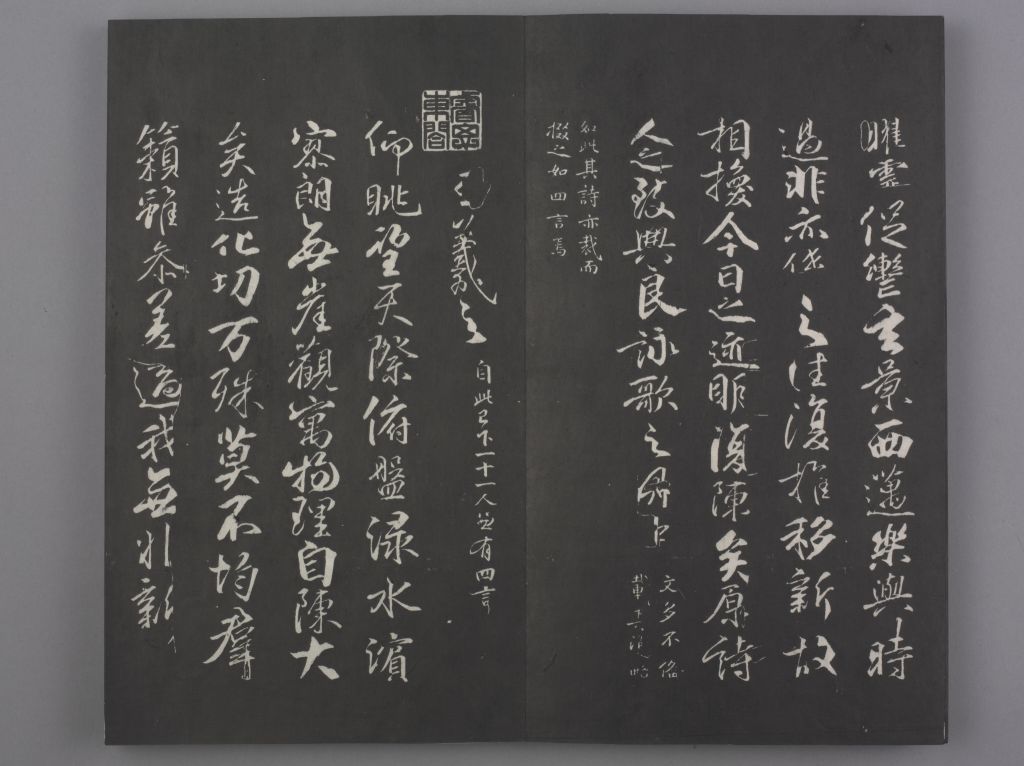 曜靈促轡玄景西邁樂與時
過悲亦係之往復推移新故
相換今日之迹明復陳矣原詩
人之致興良詠歌之有由
文多不備
載其大略
如此其詩亦裁而
綴之如四言焉
睿思東閣
王羲之 自此已下一十一人並有四言
仰眺望天際俯盤淥水濱
寥朗無崖觀寓物理自陳大
矣造化功万殊莫不均群
籟雖參差適我無非新